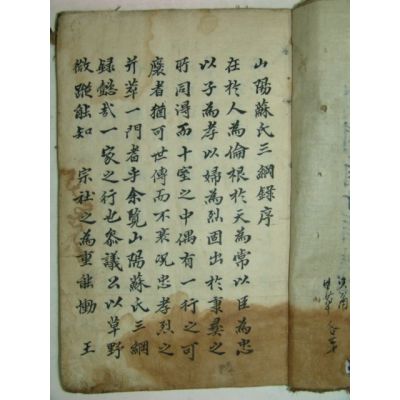 山陽蘇氏三綱錄序
在於人為倫根於天為常以臣為忠
以子為孝以婦為烈固出於秉彝之
所同得而十室之中偶有一行之可
褒者猶可世傳而不衰况忠孝烈之
并萃一門者乎余覽山陽蘇氏三綱
録懿哉一家之行也叅議公以草野
微蹤能知 宗社之為重能慟 王